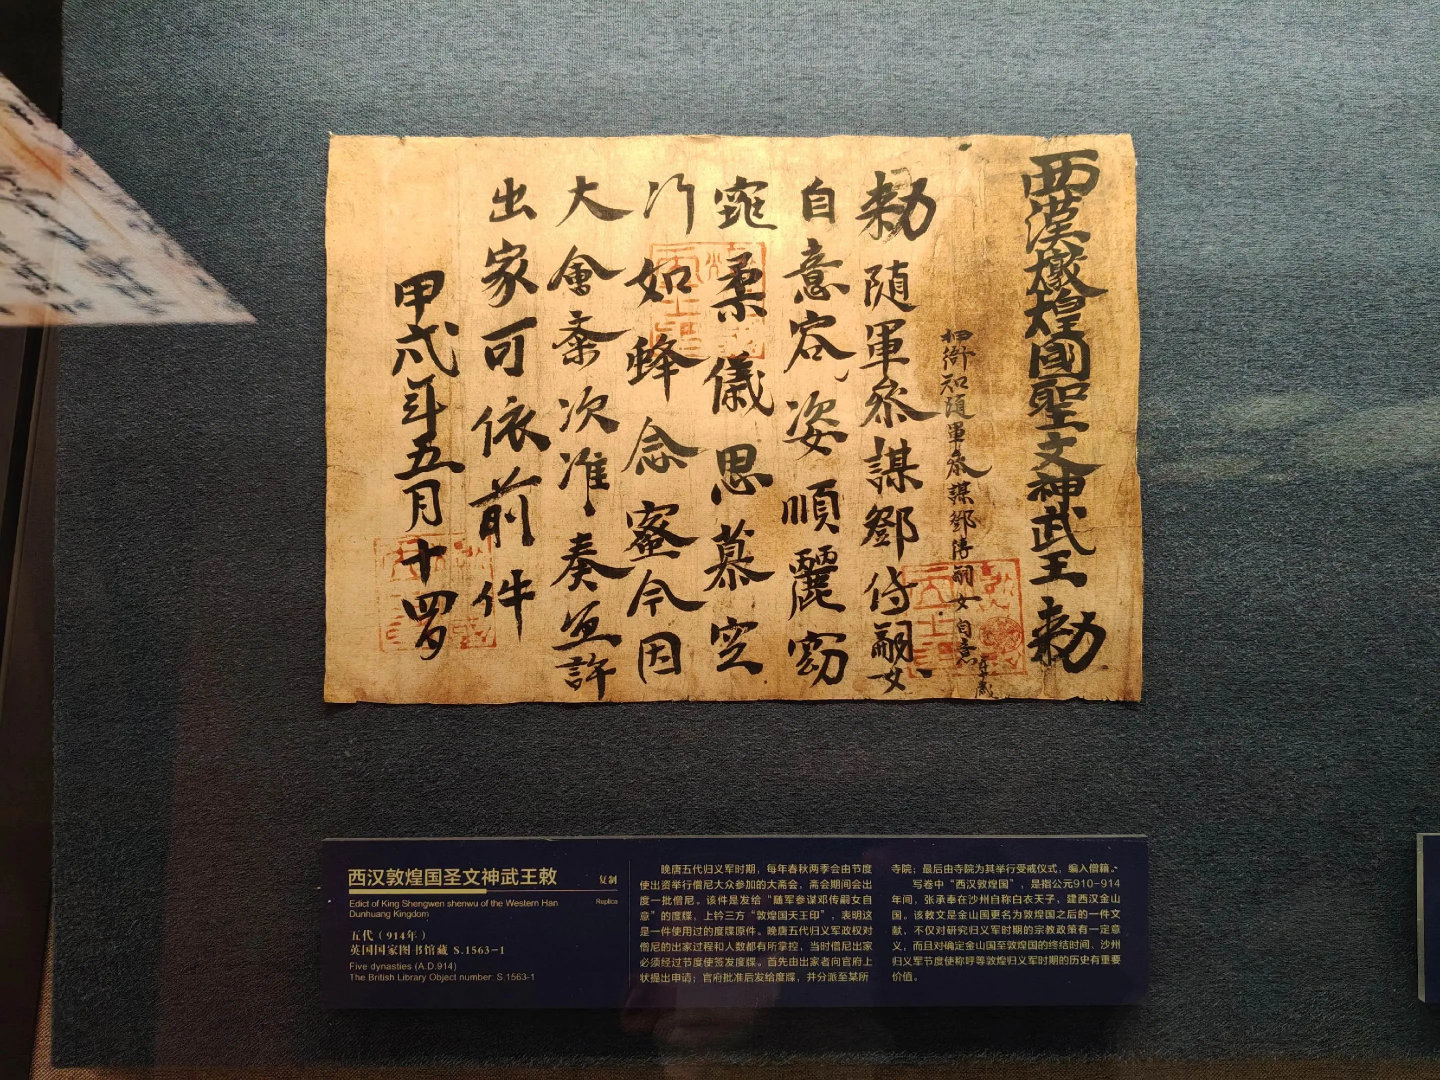 西漢燉煌國聖文神武王勅
押衙知隨軍叅謀鄧傳嗣女自意
勅隨軍叅謀鄧傳嗣女
自意容姿順麗窈
窕柔儀思慕空
門如蜂念蜜今因
大會齋次准奏宜許
出家可依前件
甲戌年五月十四日
西汉敦煌国圣文神武王敕
复制
Edict of King Shengwen shenwu of the Western Han
Dunhuang Kingdom
Replica
五代（914年）
英国国家图书馆藏 S.1563-1
Five dynasties (A.D.914)
The British Library Object number: S.1563-1
晚唐五代归义军时期，每年春秋两季会由节度
使出资举行僧尼大众参加的大斋会，斋会期间会出
度一批僧尼。该件是发给“随军参谋邓传嗣女自
意”的度牒，上钤三方“敦煌国天王印”，表明这
是一件使用过的度牒原件。晚唐五代归义军政权对
僧尼的出家过程和人数都有所掌控，当时僧尼出家
必须经过节度使签发度牒。首先由出家者向官府上
状提出申请；官府批准后发给度牒，并分派至某所
寺院；最后由寺院为其举行受戒仪式，编入僧籍。
写卷中“西汉敦煌国”，是指公元910-914
年间，张承奉在沙州自称白衣天子，建西汉金山
国。该敕文是金山国更名为敦煌国之后的一件文
献，不仅对研究归义军时期的宗教政策有一定意
义，而且对确定金山国至敦煌国的终结时间、沙州
归义军节度使称呼等敦煌归义军时期的历史有重要
价值。